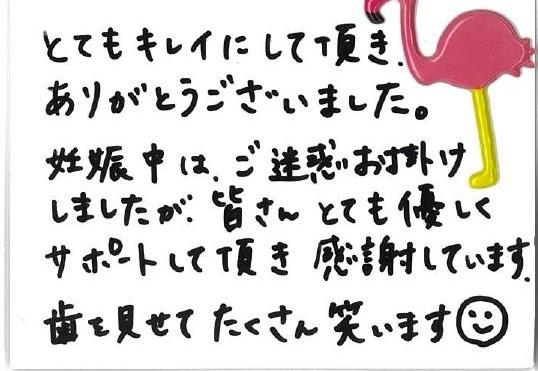 とてもキレイにして頂き、
ありがとうございました。
妊娠中は、ご迷惑お掛け
しましたが、皆さんとても優しく
サポートして頂き感謝しています。
歯を見せてたくさん笑います